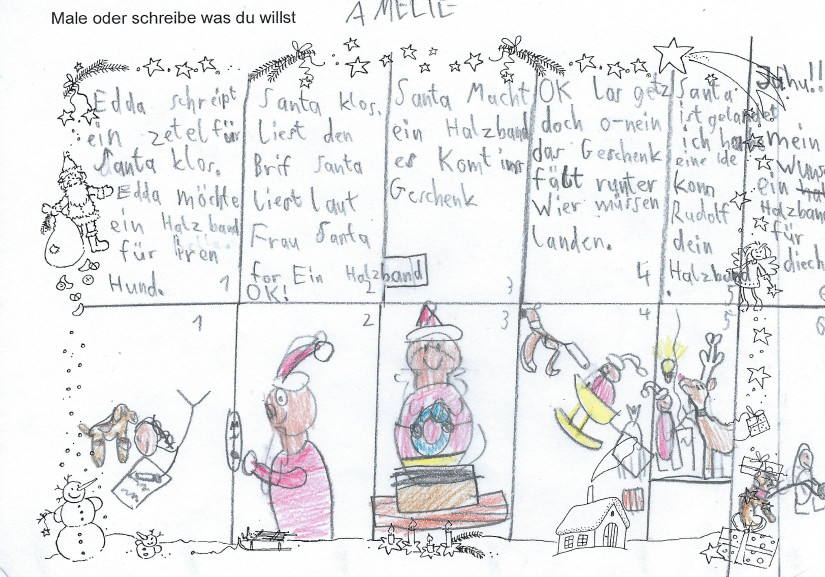 Male oder schreibe was du willst
AMELIE
Edda schreipt
ein zetel für
Santa klos.
Edda möchte
ein Halz band
für iren
Hund.
1
Santa klos.
Liest den
Brif Santa
liest laut
Frau Santa
for Ein Halzband
OK!
2
Santa Macht
ein Halzband
es Komt ins
Geschenk
3
OK Los getz
doch o-nein
das Geschenk
fält runter
Wier müssen
landen.
4
Santa
ist gelandet
ich habe
eine ide
konn
Rudolf
dein
Halzband
.
5
Juhu!!
mein
Wunsch
ein
Halzband
für
diech
6
1
2
3
4
5
6